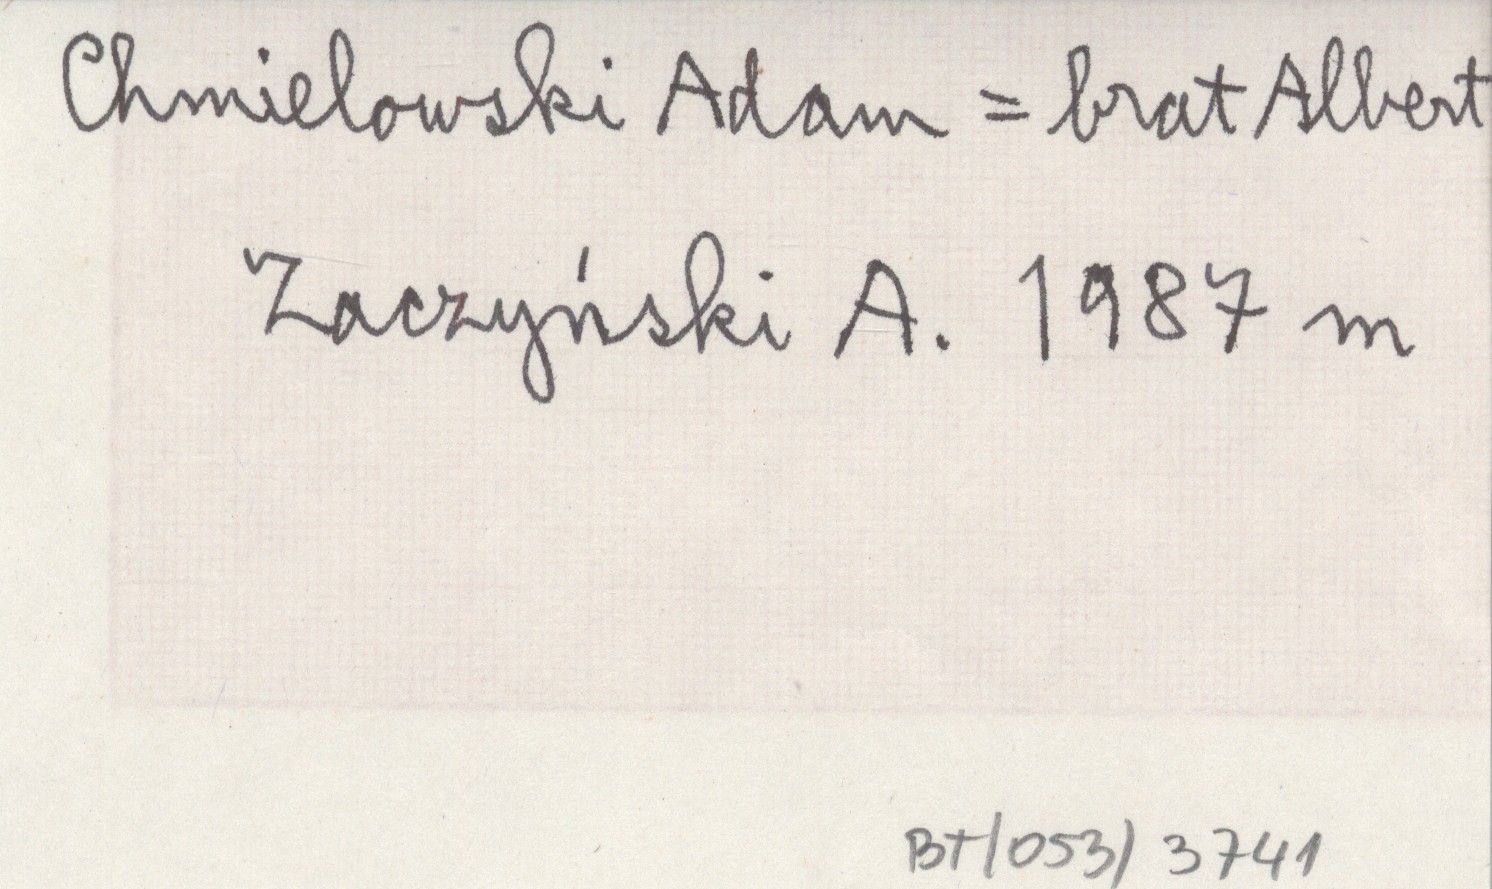 Chmielowski Adam = brat Albert
Zaczyński A. 1987 m
BT/053/3741